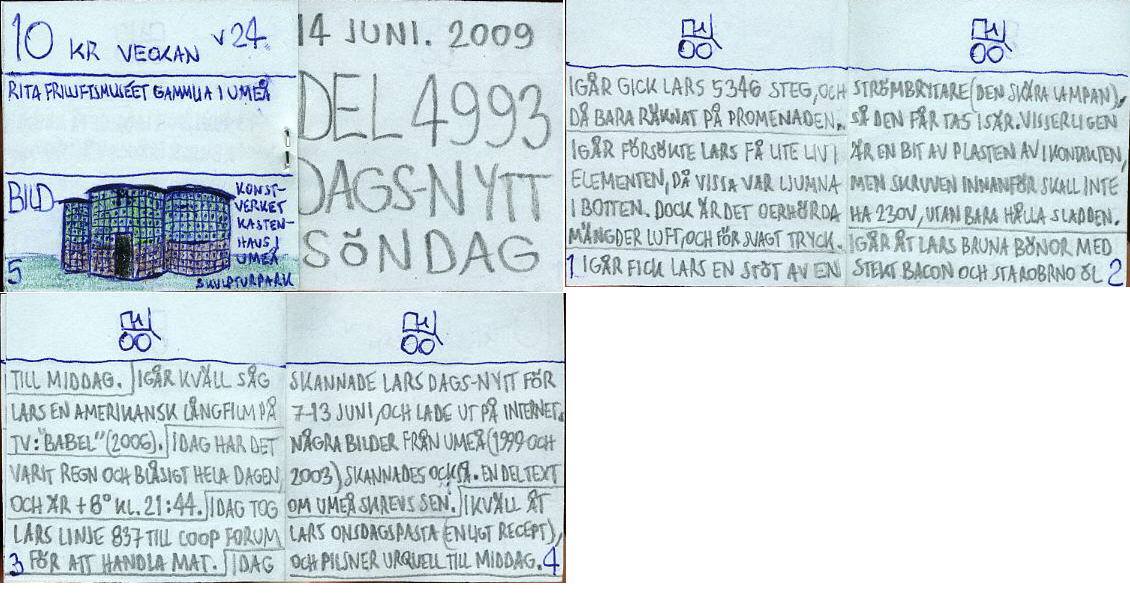 10 KR VECKAN V24.
RITA FRILUFTSMUSÉET GAMMLIA I UMEÅ
BILD
KONST-
VERKET
KASTEN-
HAUS I
UMEÅ
SKULPTURPARK
5
14 JUNI. 2009
DEL 4993
DAGS-NYTT
SÖNDAG
IGÅR GICK LARS 5346 STEG, OCH
DÅ BARA RÄKNAT PÅ PROMENADEN.
IGÅR FÖRSÖKTE LARS FÅ LITE LIV I
ELEMENTEN, DÅ VISSA VAR LJUMNA
I BOTTEN. DOCK ÄR DET OERHÖRDA
MÄNGDER LUFT, OCH FÖR SVAGT TRYCK.
1 IGÅR FICK LARS EN STÖT AV EN
STRÖMBRYTARE (DEN SKÄRA LAMPAN),
SÅ DEN FÅR TAS ISÄR. VISSERLIGEN
ÄR EN BIT AV PLASTEN AV I KONTAKTEN,
MEN SKRUVEN INNANFÖR SKALL INTE
HA 230V, UTAN BARA HÅLLA SLADDEN.
IGÅR ÅT LARS BRUNA BÖNOR MED
STEKT BACON OCH STAROBRNO ÖL 2
TILL MIDDAG. IGÅR KVÄLL SÅG
LARS EN AMERIKANSK LÅNGFILM PÅ
TV: "BABEL" (2006). IDAG HAR DET
VARIT REGN OCH BLÅSIGT HELA DAGEN,
OCH ÄR +8° KL. 21:44. IDAG TOG
LARS LINJE 837 TILL COOP FORUM
3 FÖR ATT HANDLA MAT. IDAG
SKANNADE LARS DAGS-NYTT FÖR
7-13 JUNI, OCH LADE UT PÅ INTERNET.
NÅGRA BILDER FRÅN UMEÅ (1999 OCH
2003) SKANNADES OCKSÅ. EN DEL TEXT
OM UMEÅ SKREVS SEN. IKVÄLL ÅT
LARS ONSDAGSPASTA (ENLIGT RECEPT),
OCH PILSNER URQUELL TILL MIDDAG. 4